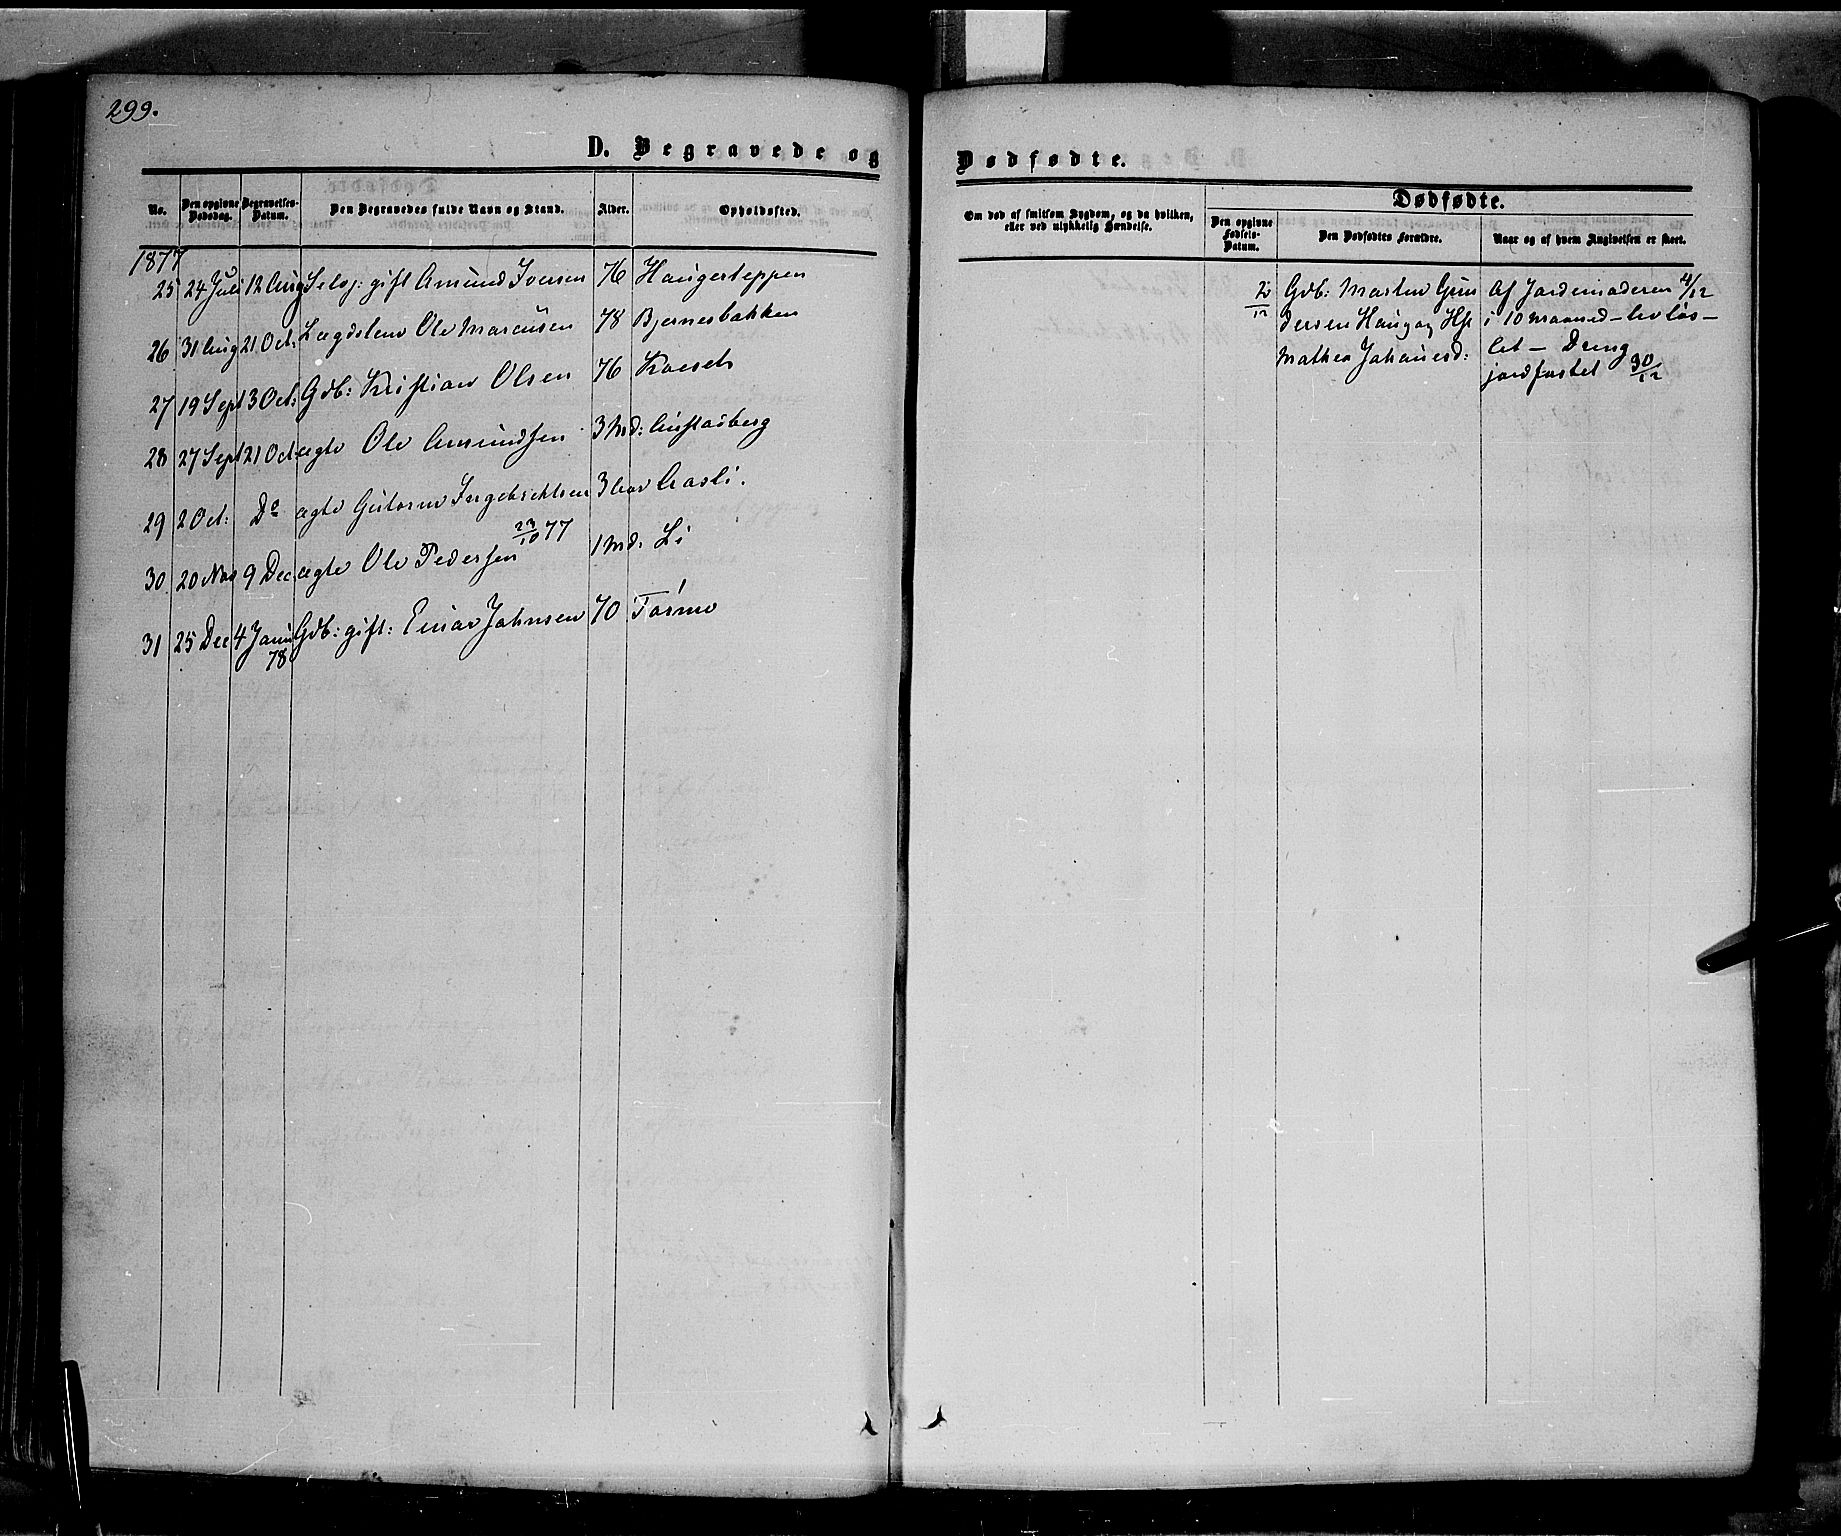 299.
D. Begravede og
No. Den opgivne Dødsdag. Begravelses-Datum. Den Begravedes fulde Navn og Stand. Alder. Opholdssted.
1877
25 24 Juli 12 Aug Selvej: gift Amund Iversen 76 Haugerteppen
26 31 Aug 21 Oct: Lægdslem Ole Marcusen 78 Bjernesbakken
27 19 Sept 3 Oct: Gdb: Kristian Olsen 76
28 27 Sept 21 Oct ægte Ole Amundsen 3 Md: Austadberg
29 2 Oct: Do ægte Gutorm Ingebrektsen 3 Aar Aasli.
23/10 77
30 20 Nov 9 Dec ægte Ole Pedersen 1 Md. Li
31 25 Dec 4 Janu Gdb: gift: Einar Johnsen 70 Formo
78
Dødfødte.
Om død af smitsom Sygdom, og da hvilken, eller ved ulykkelig Hændelse.
Dødfødte.
Den opgivne Fødsels-Datum. Den Dødfødtes Forældre. Naar og af hvem Angivelsen er skeet.
2/12 Gdb: Marten Gun Af Jordemoderen 4/12
dersen Haug og Hst i 10 Maaned - livløs -
Mathea Johanesd: let - Dreng
jordfæstet 30/12